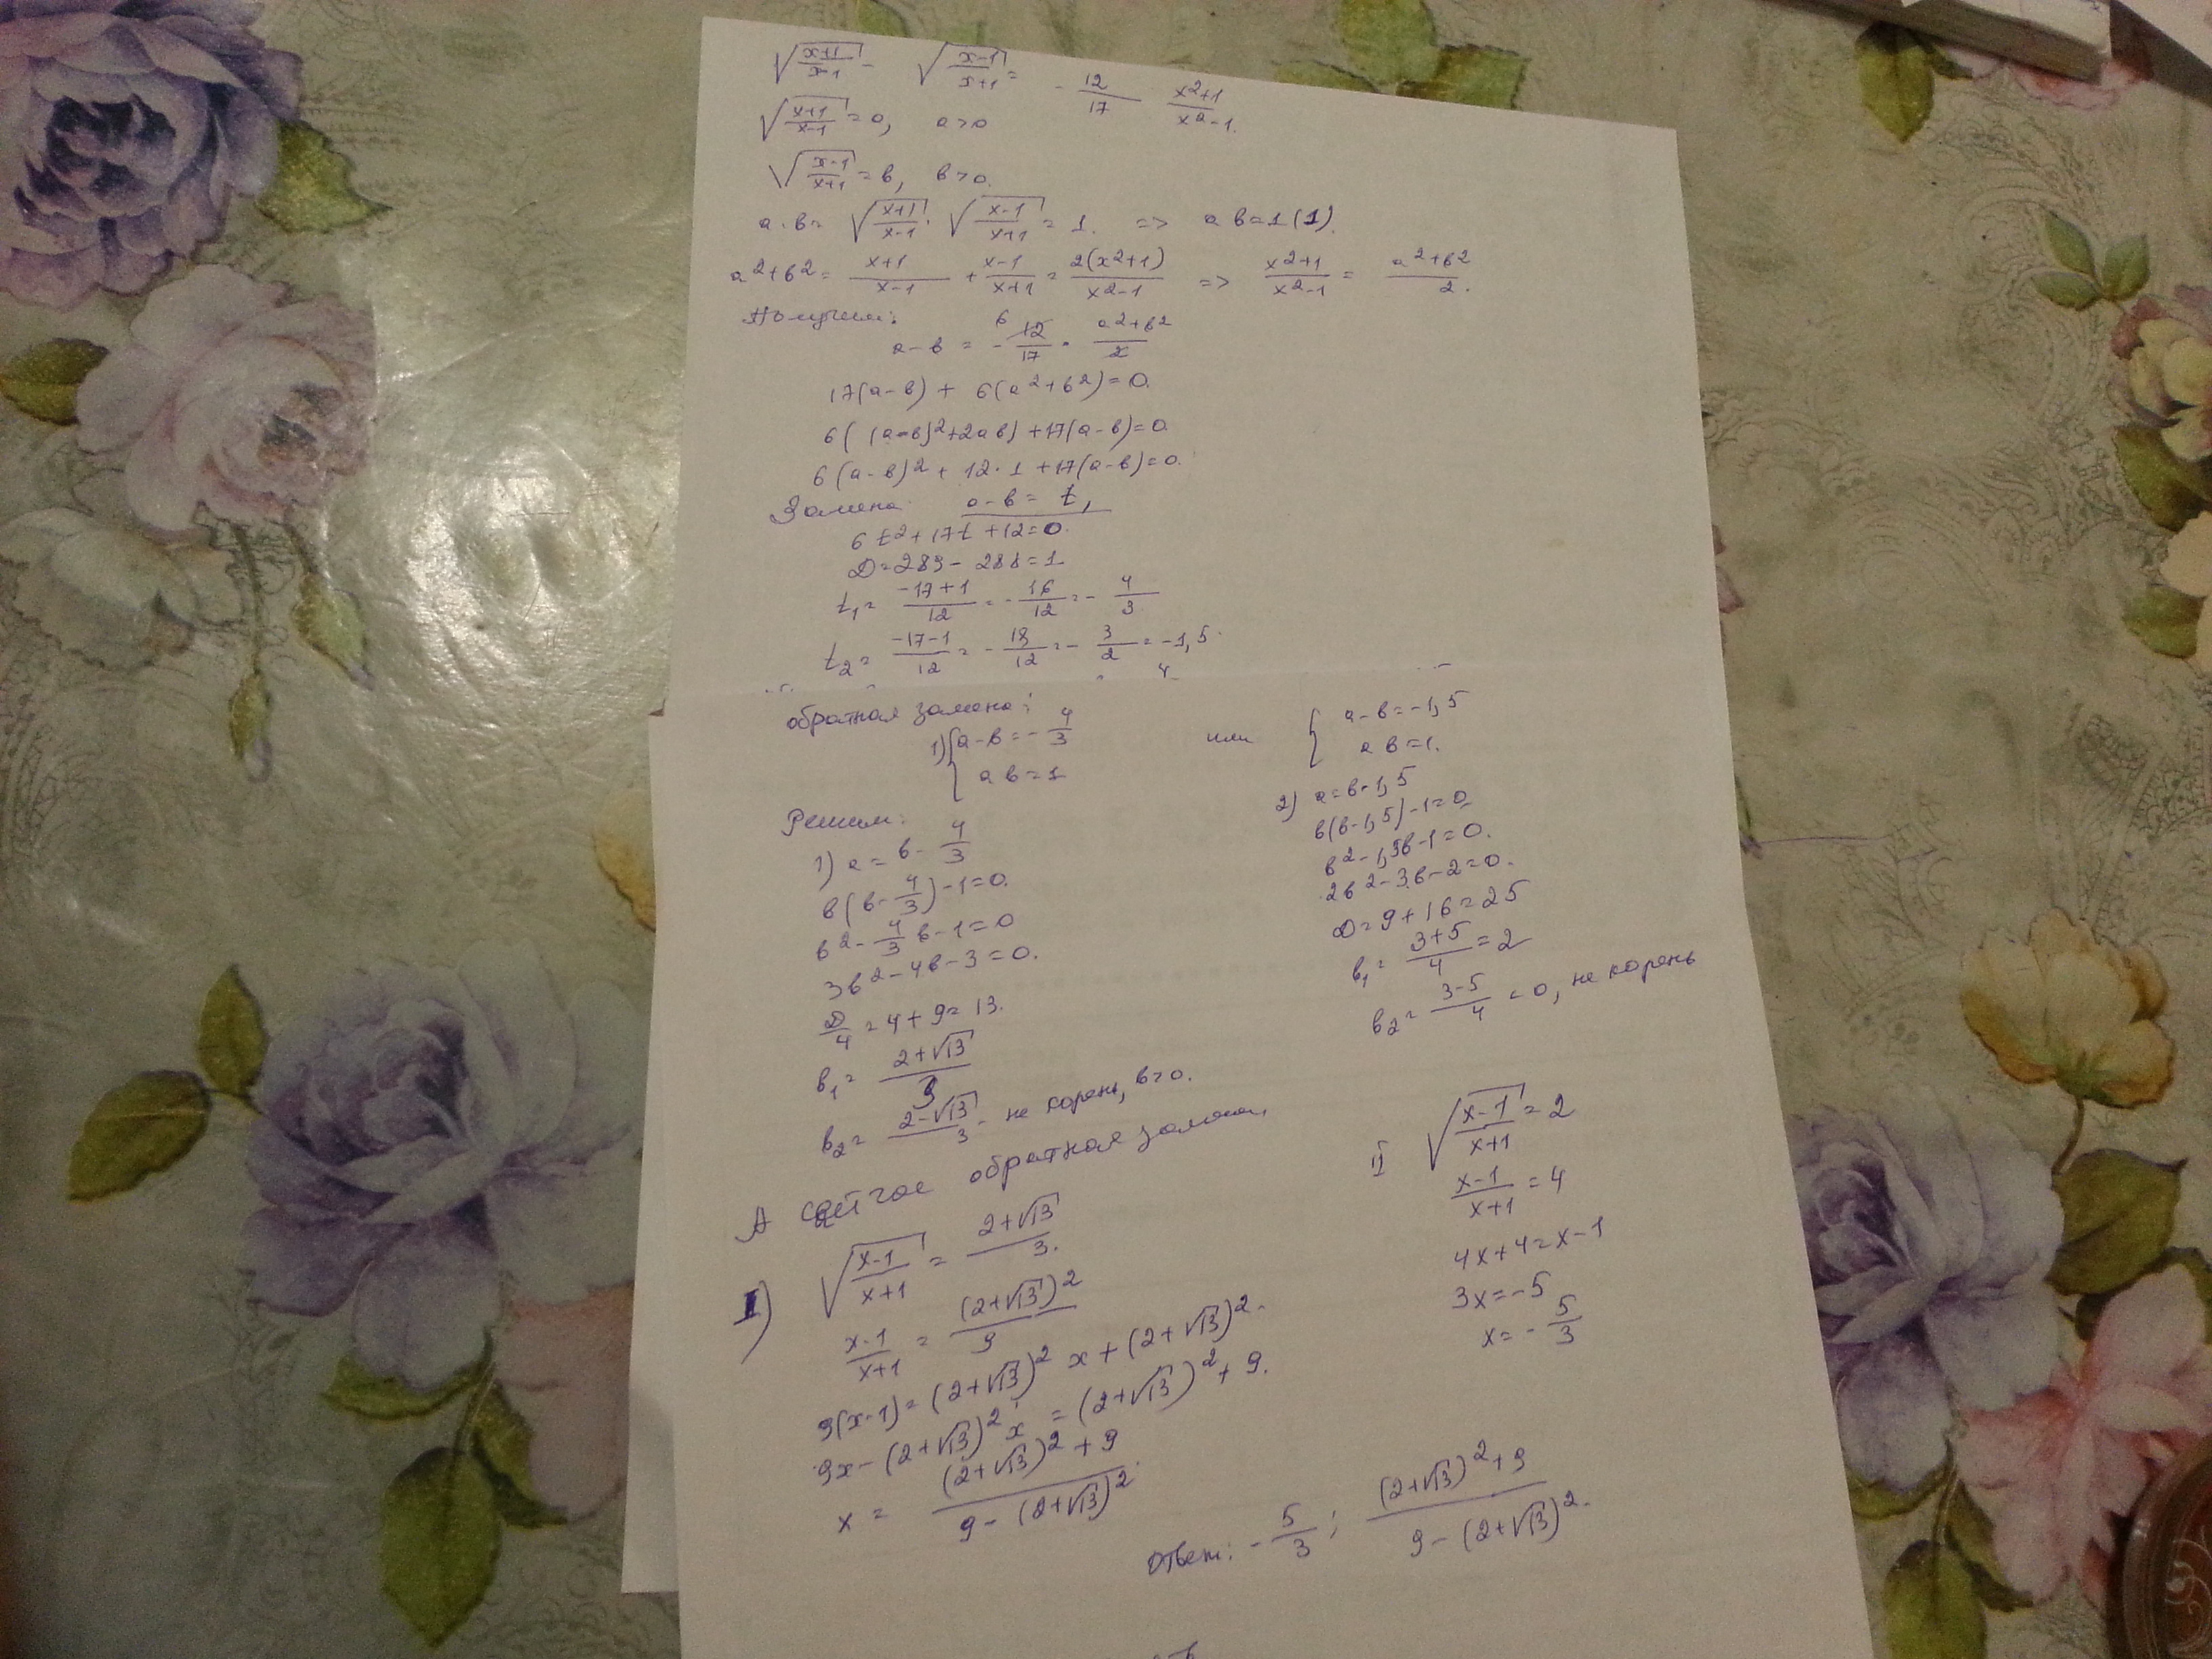 √((x+1)/(x-1)) - √((x-1)/(x+1)) = - 12/17 (x²+1)/(x²-1).
√((x+1)/(x-1)) = a, a>0
√((x-1)/(x+1)) = в, в>0.
a·в = √((x+1)/(x-1)) · √((x-1)/(x+1)) = 1. => aв=1 (1).
a²+в² = (x+1)/(x-1) + (x-1)/(x+1) = 2(x²+1)/(x²-1) => (x²+1)/(x²-1) = (a²+в²)/2.
Получим:
a-в = - 12/17 · (a²+в²)/2 6
17(a-в) + 6(a²+в²)=0.
6((a-в)²+2aв)+17(a-в)=0.
6(a-в)² + 12·1 +17(a-в)=0.
Замена: a-в = t,
6t²+17t+12=0.
D=289-288=1
t₁= (-17+1)/12 = - 16/12 = - 4/3
t₂= (-17-1)/12 = - 18/12 = - 3/2 = -1,5.
обратная замена:
1) { a-в = - 4/3
aв=1
или
{ a-в=-1,5
aв=1.
Решим:
1) a = в - 4/3
в(в - 4/3) -1=0.
в² - 4/3 в - 1=0
3в²-4в-3=0.
D/4 = 4+9=13.
в₁= (2+√13)/3
в₂= (2-√13)/3 - не корень, в>0.
2) a=в-1,5
в(в-1,5)-1=0
в²-1,5в-1=0.
2в²-3в-2=0.
D=9+16=25
в₁= (3+5)/4 = 2
в₂= (3-5)/4 <0, не корень
А сейчас обратная замена,
I) √((x-1)/(x+1)) = (2+√13)/3.
(x-1)/(x+1) = (2+√13)²/9
9(x-1)=(2+√13)² x+(2+√13)².
9x-(2+√13)²x = (2+√13)²+9.
x = ((2+√13)²+9)/(9-(2+√13)²).
II √((x-1)/(x+1)) = 2
(x-1)/(x+1) = 4
4x+4=x-1
3x=-5
x= - 5/3
Ответ: - 5/3 ; ((2+√13)²+9)/(9-(2+√13)²).